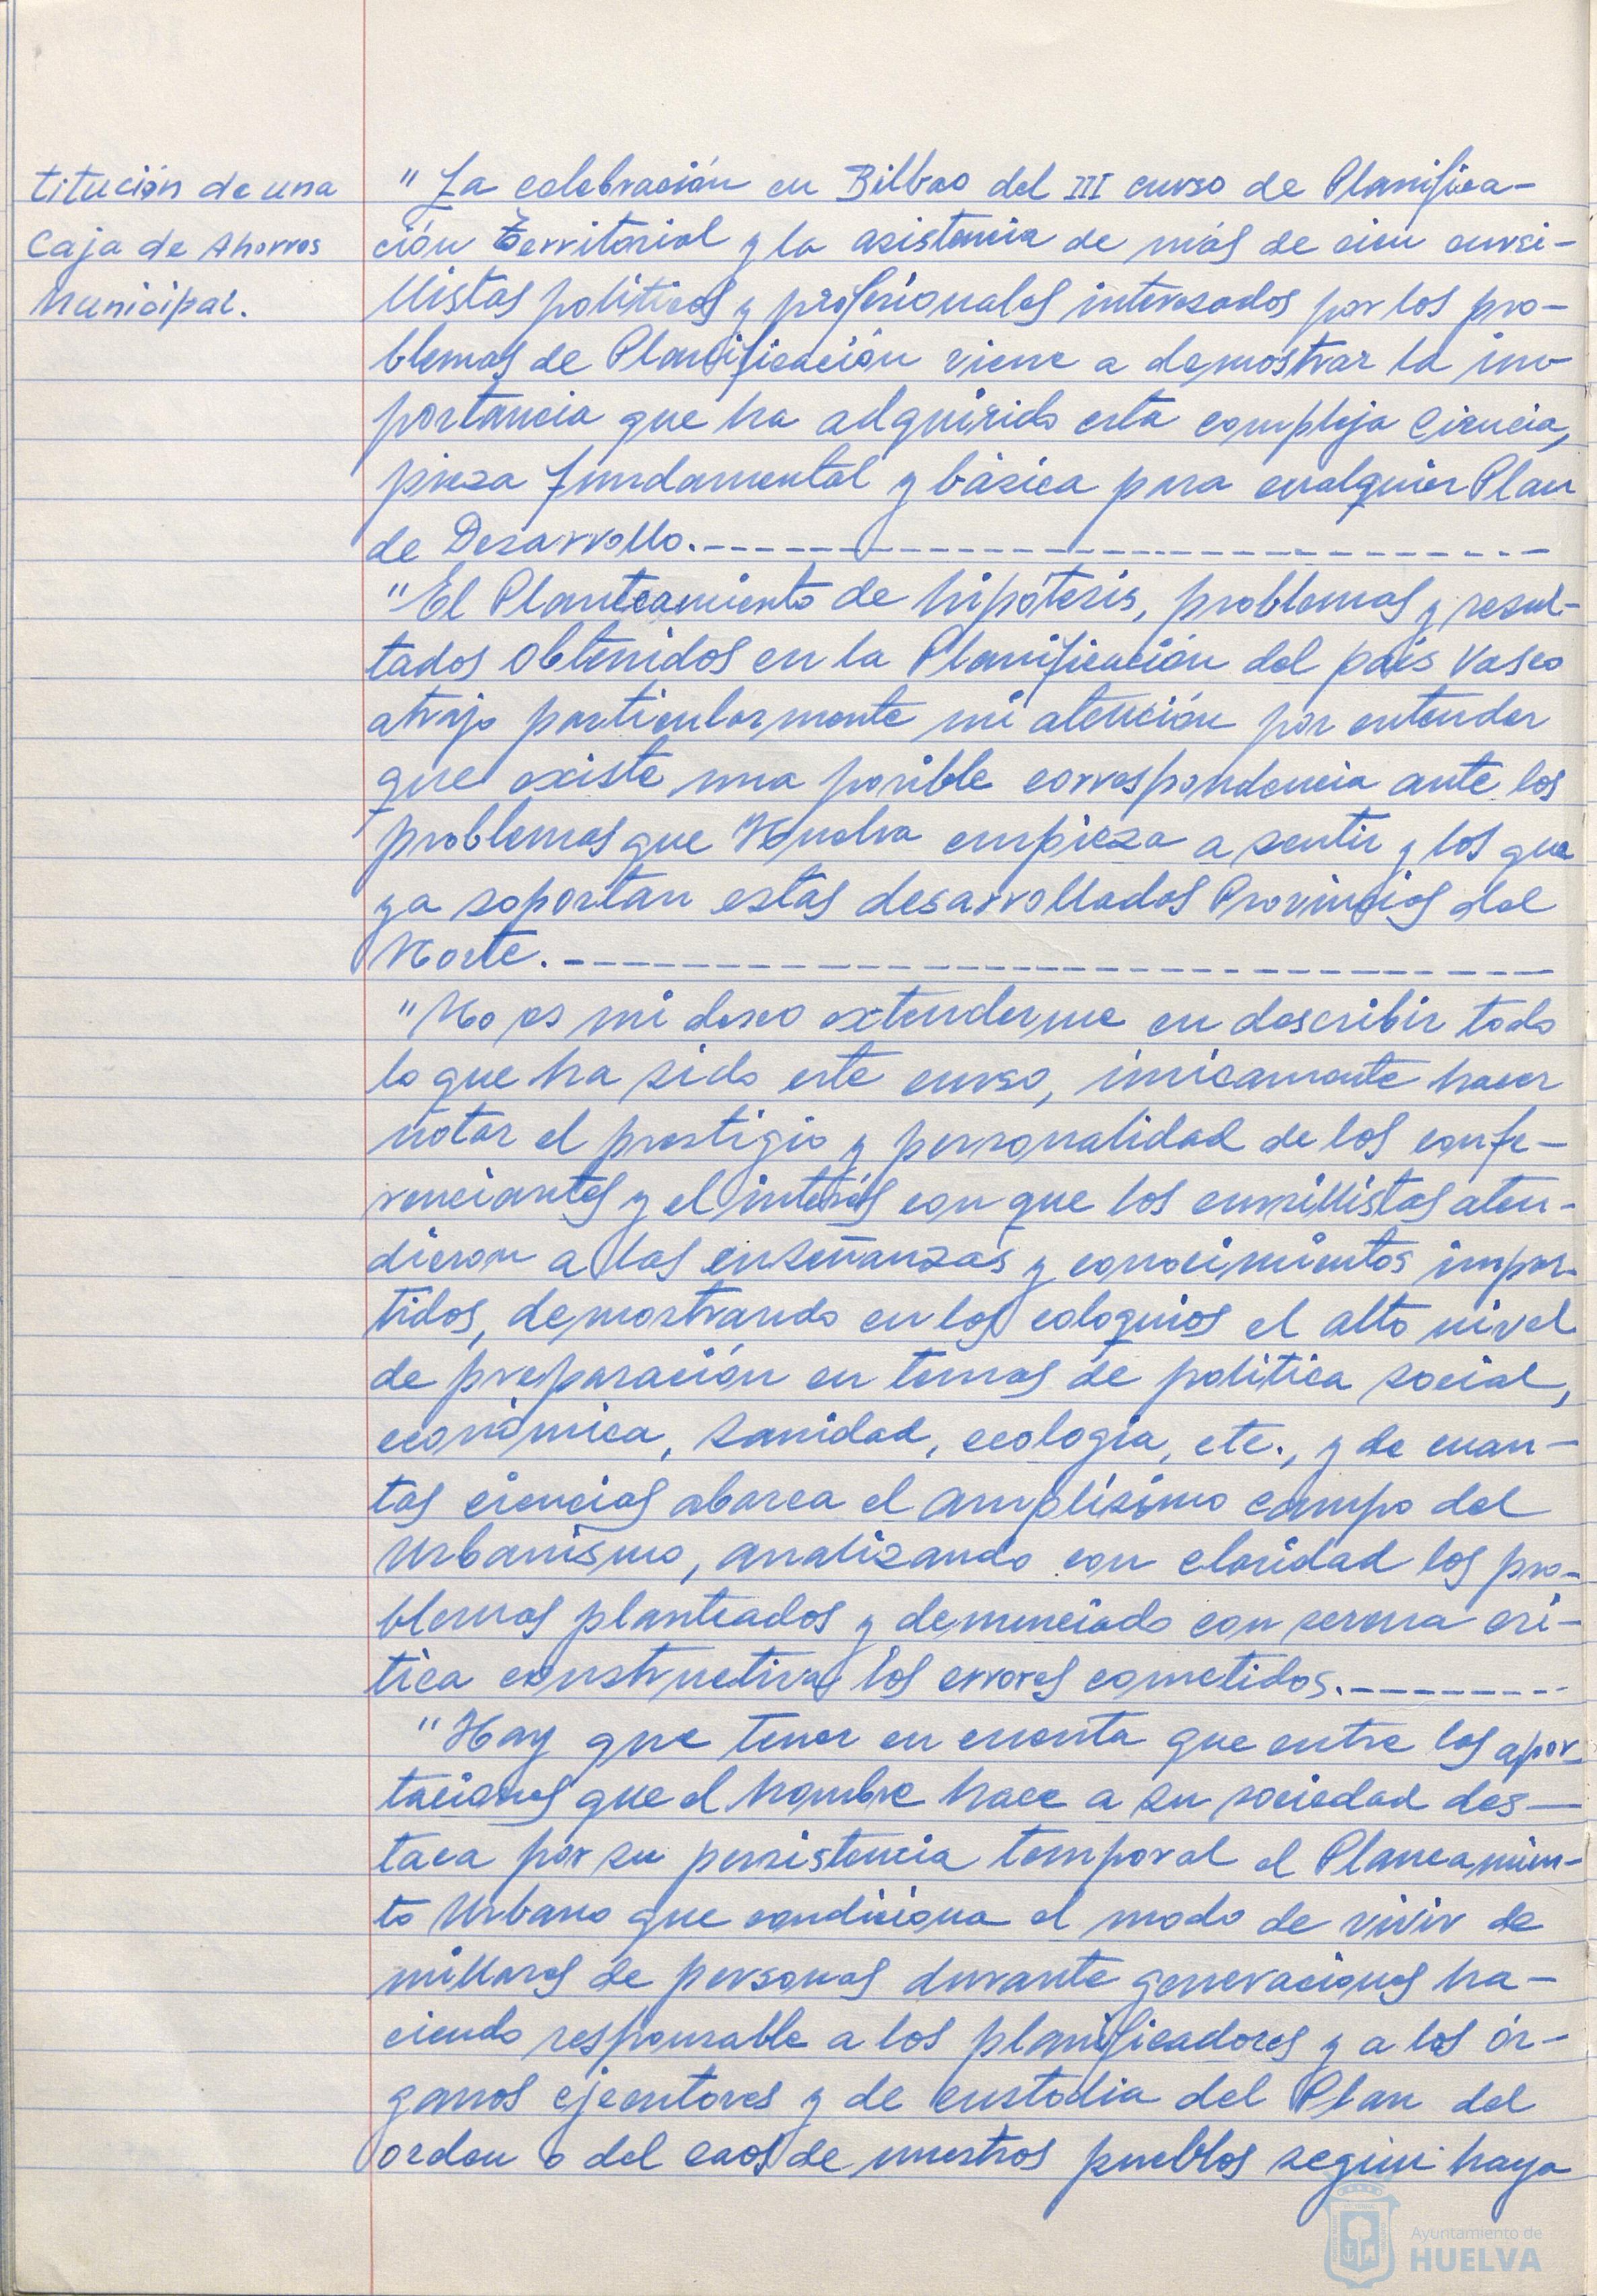 titución de una
Caja de Ahorros
Municipal.
"La celebración en Bilbao del III curso de Planifica-
ción Territorial y la asistencia de más de cien cursi-
llistas políticos y profesionales interesados por los pro-
blemas de Planificación viene a demostrar la im-
portancia que ha adquirido esta compleja Ciencia,
pieza fundamental y básica para cualquier Plan
de Desarrollo.
"El Planteamiento de hipótesis, problemas y resul-
tados obtenidos en la Planificación del país Vasco
atrajo particularmente mi atención por entender
que existe una posible correspondencia ante los
problemas que Huelva empieza a sentir y los que
ya soportan estas desarrolladas Provincias del
Norte.
"No es mi deseo extenderme en describir todo
lo que ha sido este curso, únicamente hacer
notar el prestigio y personalidad de los confe-
renciantes y el interés con que los cursillistas aten-
dieron a las enseñanzas y conocimientos impar-
tidos, demostrando en los coloquios el alto nivel
de preparación en temas de política social,
económica, sanidad, ecología, etc., y de cuan-
tas ciencias abarca el amplísimo campo del
Urbanismo, analizando con claridad los pro-
blemas planteados y denunciado con serena crí-
tica constructiva los errores cometidos.
"Hay que tener en cuenta que entre las apor-
taciones que el hombre hace a su sociedad des-
taca por su persistencia temporal el Planeamien-
to Urbano que condiciona el modo de vivir de
millares de personas durante generaciones ha-
ciendo responsable a los planificadores y a los ór-
ganos ejecutores y de custodia del Plan del
orden o del caos de nuestros pueblos según haya
Ayuntamiento de
HUELVA